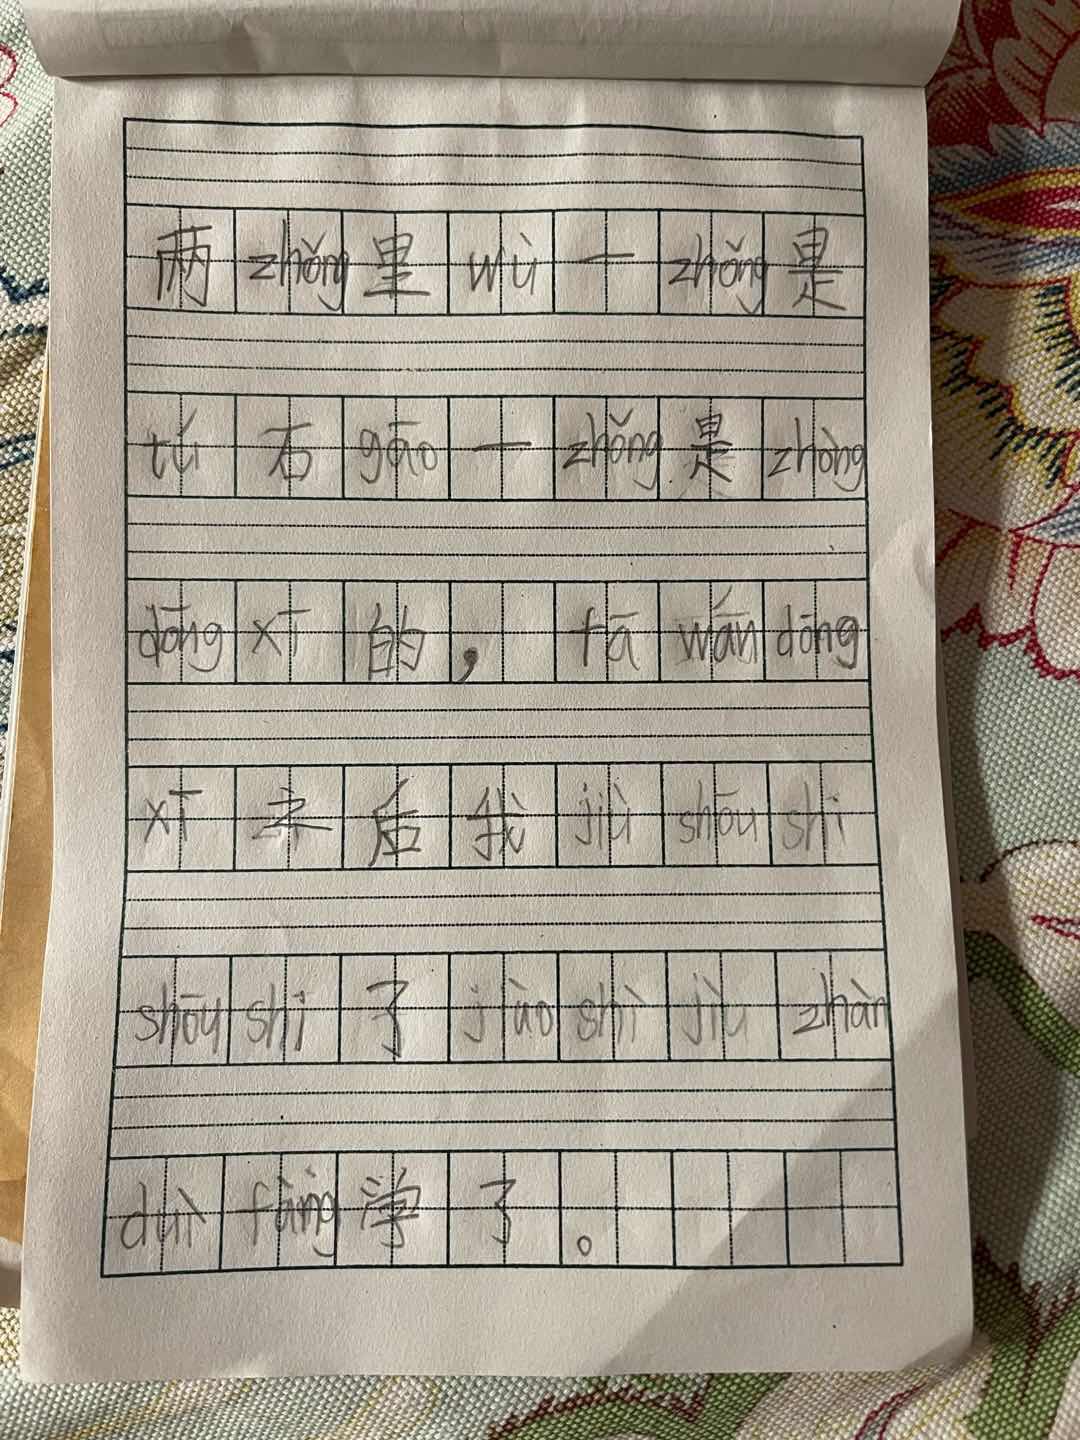 两 zhǒng 里 wù 一 zhǒng 是
tú 右 gāo 一 zhǒng 是 zhòng
dōng xī 的， tā wán dōng
xī 之 后 我 jiù shōu shi
shōu shi 了 jiào shì jiù zhàn
duì fàng 学 了 。